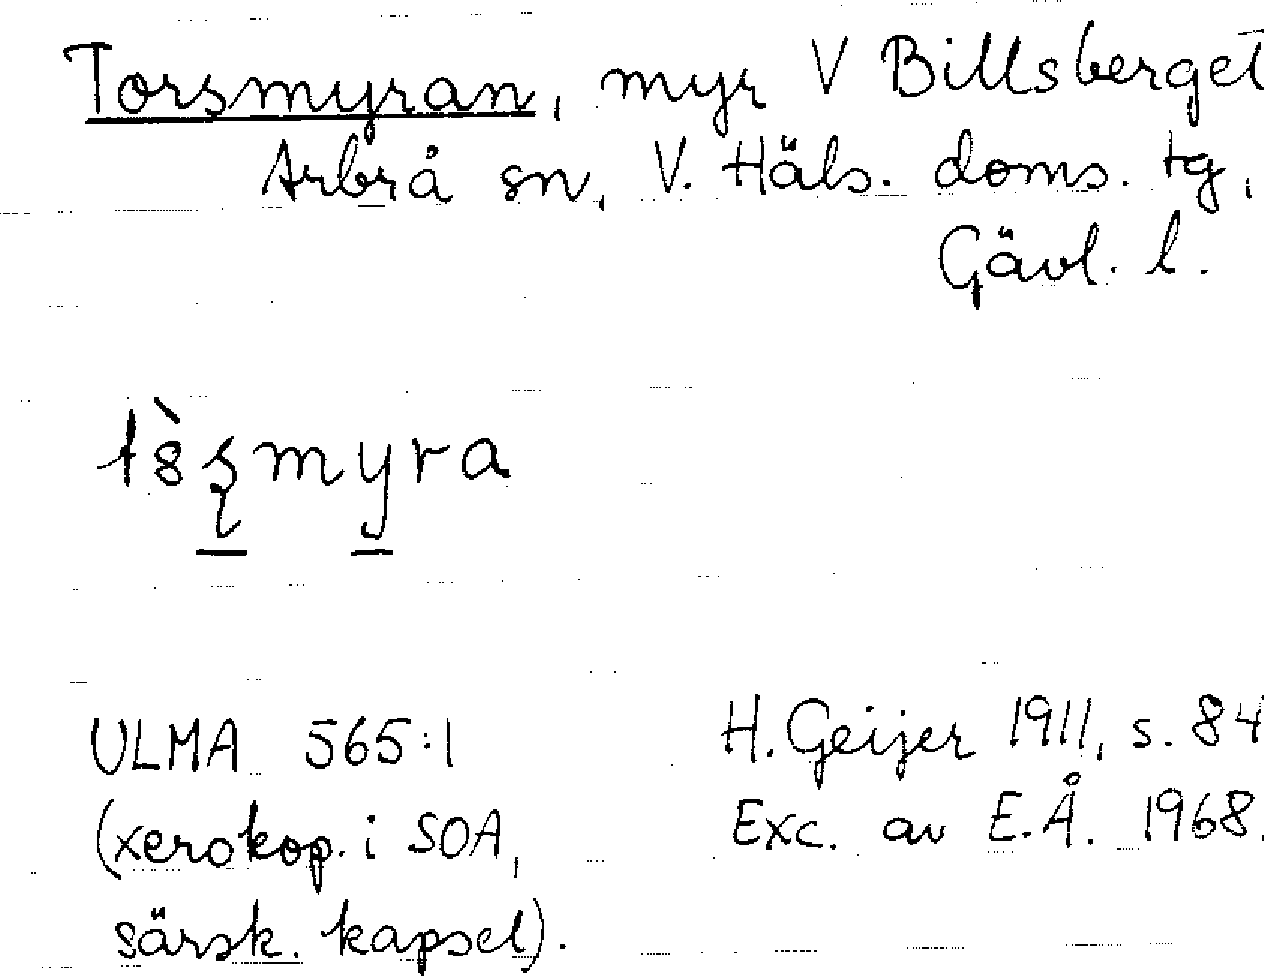 Torsmyran, myr V Billsberget
Arbrå sn, V. Häls. doms. tg,
Gävl. l.
ULMA 565:1
(xerokop. i SOA,
särsk. kapsel).
H. Geijer 1911, s. 84
Exc. av E.Å. 1968.